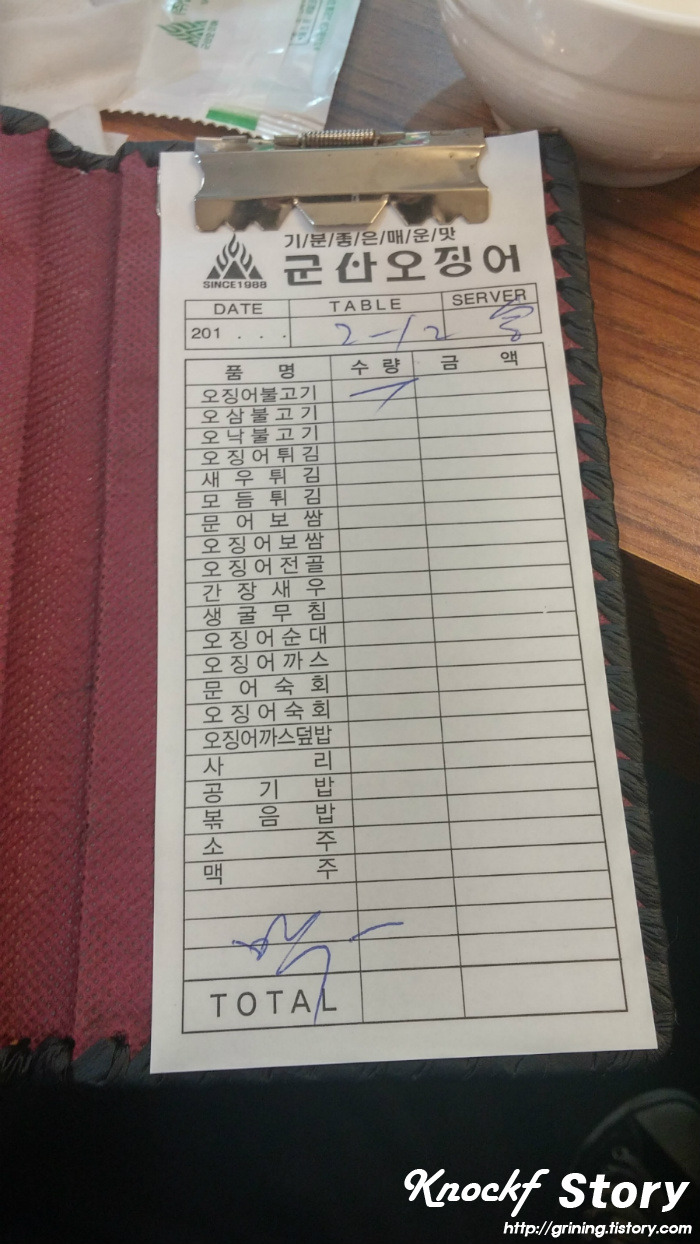 기/분/좋/은/매/운/맛
군산오징어
SINCE1988
DATE TABLE SERVER
201 . . . 2-12
품 명 수 량 금 액
오징어불고기
오삼불고기
오낙불고기
오징어튀김
새우튀김
모듬튀김
문어보쌈
오징어보쌈
오징어전골
간장새우
생굴무침
오징어순대
오징어까스
문어숙회
오징어숙회
오징어까스덮밥
사리
공기밥
볶음밥
소주
맥주
TOTAL
Knockf Story
http://grining.tistory.com